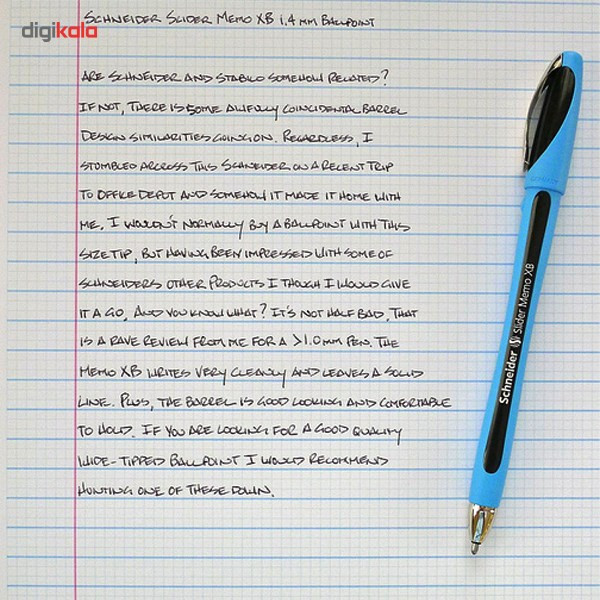 digikala
SCHNEIDER SLIDER MEMO XB 1.4 MM BALLPOINT
ARE SCHNEIDER AND STABILO SOMEHOW RELATED?
IF NOT, THERE IS SOME AWFULLY COINCIDENTAL BARREL
DESIGN SIMILARITIES GOING ON. REGARDLESS, I
STUMBLED ARCROSS THIS SCHNEIDER ON A RECENT TRIP
TO OFFICE DEPOT AND SOMEHOW IT MADE IT HOME WITH
ME. I WOULDN'T NORMALLY BUY A BALLPOINT WITH THIS
SIZE TIP, BUT HAVING BEEN IMPRESSED WITH SOME OF
SCHNEIDERS OTHER PRODUCTS I THOUGH I WOULD GIVE
IT A GO. AND YOU KNOW WHAT? IT'S NOT HALF BAD. THAT
IS A RAVE REVIEW FROM ME FOR A >1.0 MM PEN. THE
MEMO XB WRITES VERY CLEANLY AND LEAVES A SOLID
LINE. PLUS, THE BARREL IS GOOD LOOKING AND COMFORTABLE
TO HOLD. IF YOU ARE LOOKING FOR A GOOD QUALITY
WIDE-TIPPED BALLPOINT I WOULD RECOMMEND
HUNTING ONE OF THESE DOWN.
Schneider Slider Memo XB